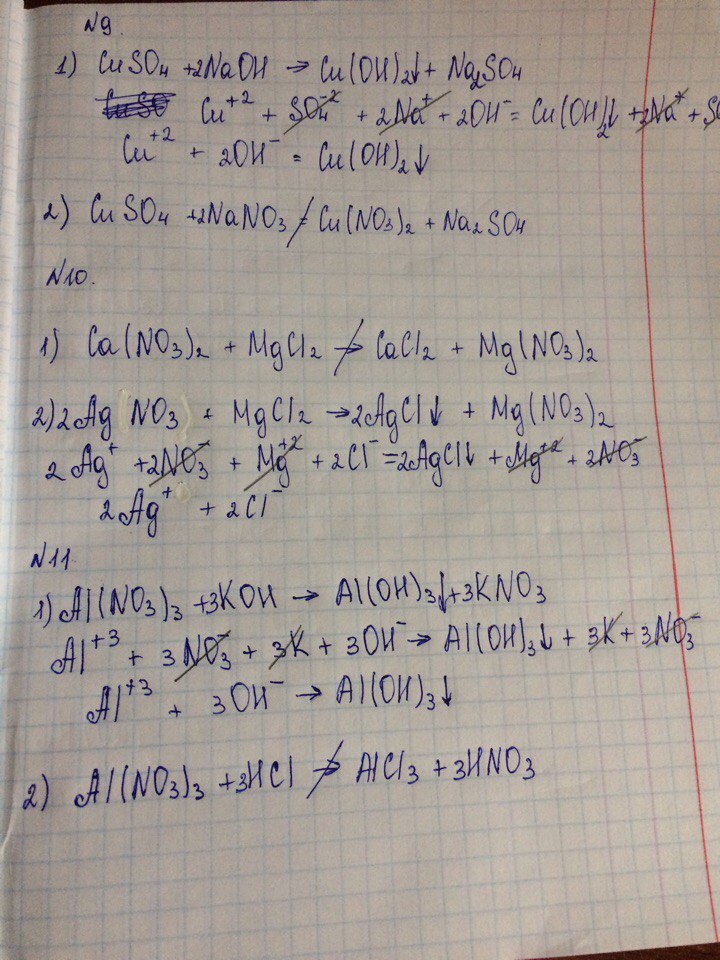 N9.
1) CuSO4 +2NaOH → Cu(OH)2↓ + Na2SO4
Cu+2 + SO4-2 + 2Na+ + 2OH- = Cu(OH)2↓ + 2Na+ +
Cu+2 + 2OH- = Cu(OH)2↓
2) CuSO4 +2NaNO3 ≠ Cu(NO3)2 + Na2SO4
N10.
1) Ca(NO3)2 + MgCl2 ↛ CaCl2 + Mg(NO3)2
2) 2Ag(NO3) + MgCl2 → 2AgCl↓ + Mg(NO3)2
2Ag+ + 2NO3- + Mg+2 + 2Cl- = 2AgCl↓ + Mg+2 + 2NO3-
2Ag+ + 2Cl-
N11
1) Al(NO3)3 +3KOH → Al(OH)3↓ +3KNO3
Al+3 + 3NO3- + 3K + 3OH- → Al(OH)3↓ + 3K + 3NO3-
Al+3 + 3OH- → Al(OH)3↓
2) Al(NO3)3 +3HCl ↛ AlCl3 + 3HNO3